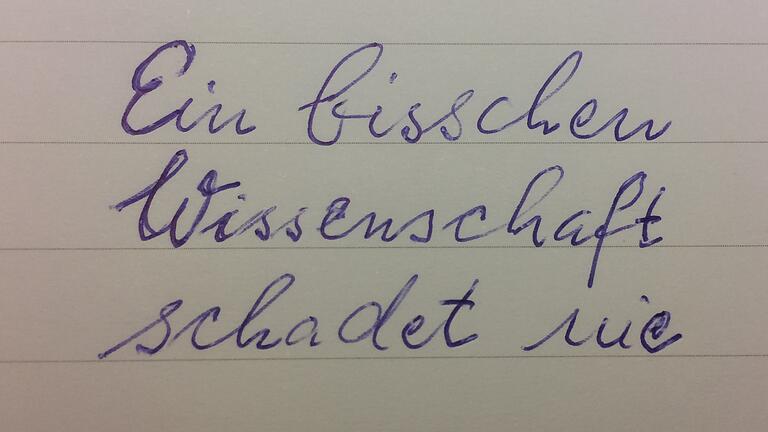 Ein bisschen
Wissenschaft
schadet nie